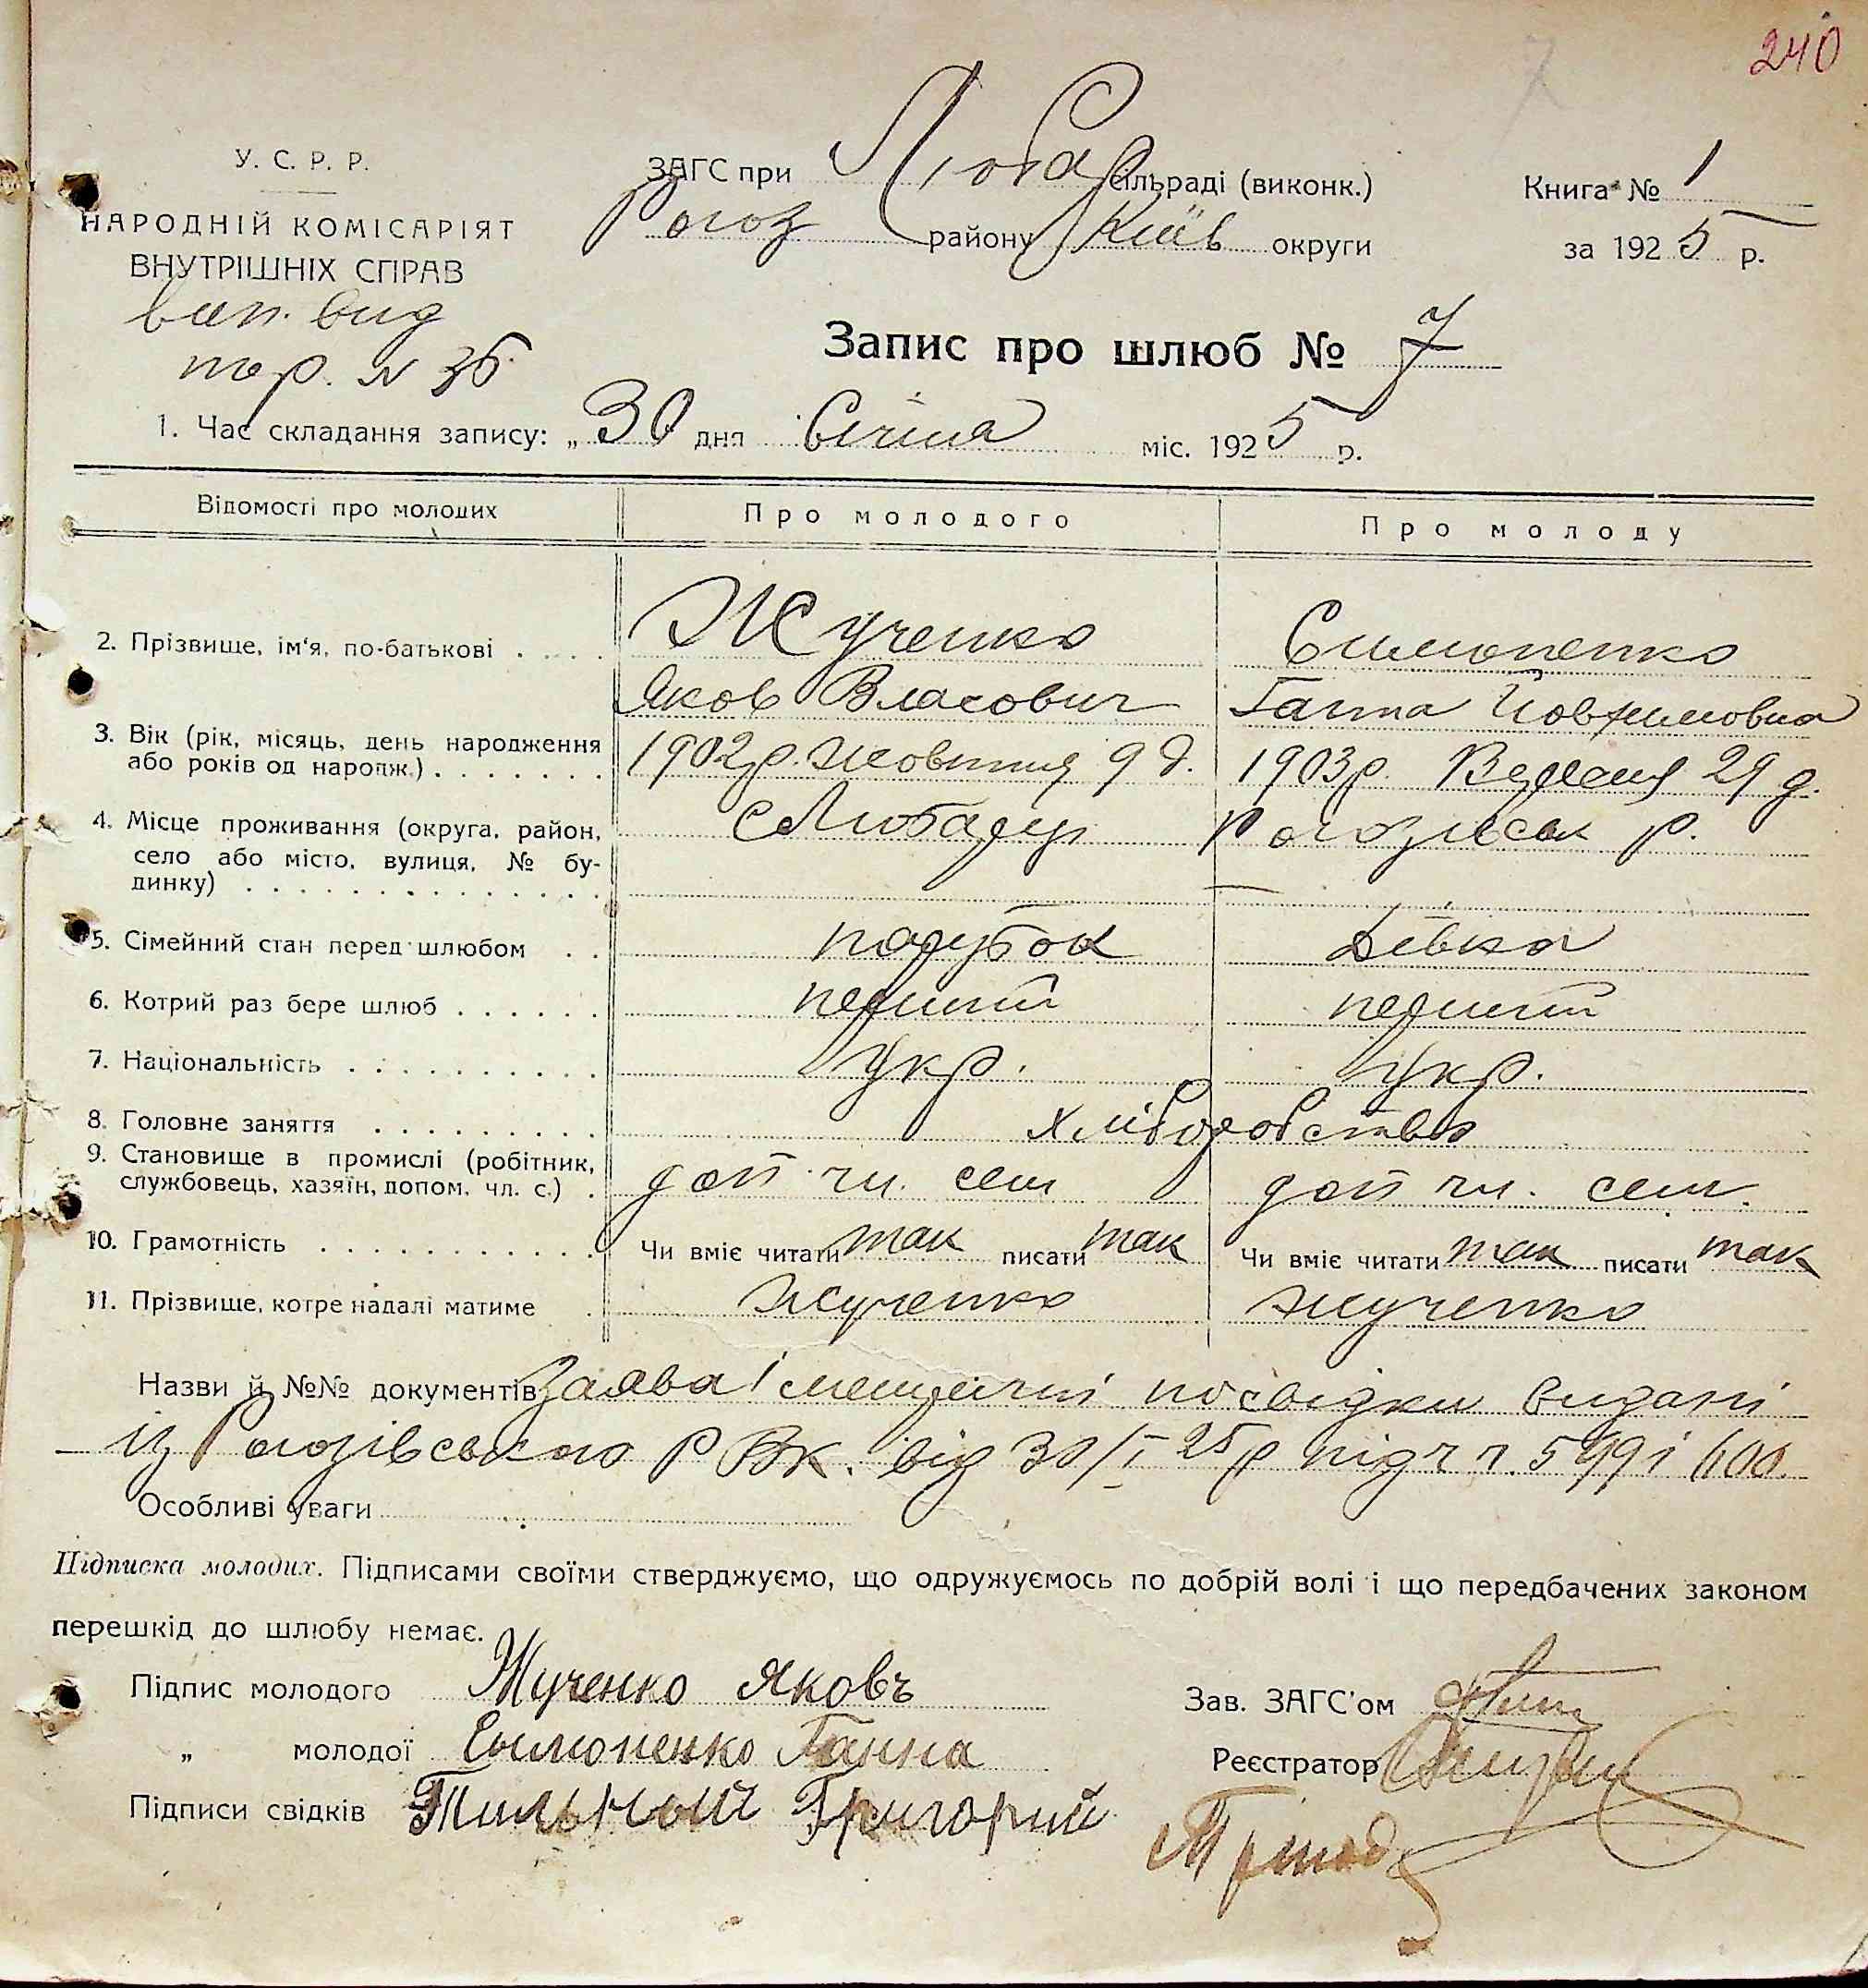 240
У. С. Р. Р.
НАРОДНІЙ КОМІСАРІЯТ
ВНУТРІШНІХ СПРАВ
вип. вид
тер. N 36
ЗАГС при Любар сільраді (виконк.)
Рогоз району Київ округи
Книга № 1
за 1925 р.
Запис про шлюб № 7
1. Час складання запису: „30 дня Січня міс. 1925 р.
Відомості про молодих Про молодого Про молоду
2. Прізвище, ім'я, по-батькові Жученко Симоненко
Яков Власович Ганна Йовхимовна
3. Вік (рік, місяць, день народження або років од народж.) 1902р. жовтня 9 д. 1903р. Вересня 29 д.
4. Місце проживання (округа, район, село або місто, вулиця, № будинку) с Любарці Рогозівськ р.
5. Сімейний стан перед шлюбом парубок дівка
6. Котрий раз бере шлюб перший перший
7. Національність Укр. Укр.
8. Головне заняття хліборобство
9. Становище в промислі (робітник, службовець, хазяїн, допом. чл. с.) доп чл. сем доп чл. сем.
10. Грамотність Чи вміє читати так писати так Чи вміє читати так писати так
11. Прізвище, котре надалі матиме Жученко Жученко
Назви й №№ документів Заява і посвідки видані
із Рогозівського РВК. від 30/I 25р під ч ч. 599 і 600.
Особливі уваги
Підписка молодих. Підписами своїми стверджуємо, що одружуємось по добрій волі і що передбачених законом
перешкід до шлюбу немає.
Підпис молодого Жученко Яковъ
„ молодої Симоненко Ганна
Підписи свідків Григорий
Зав. ЗАГС'ом
Реєстратор